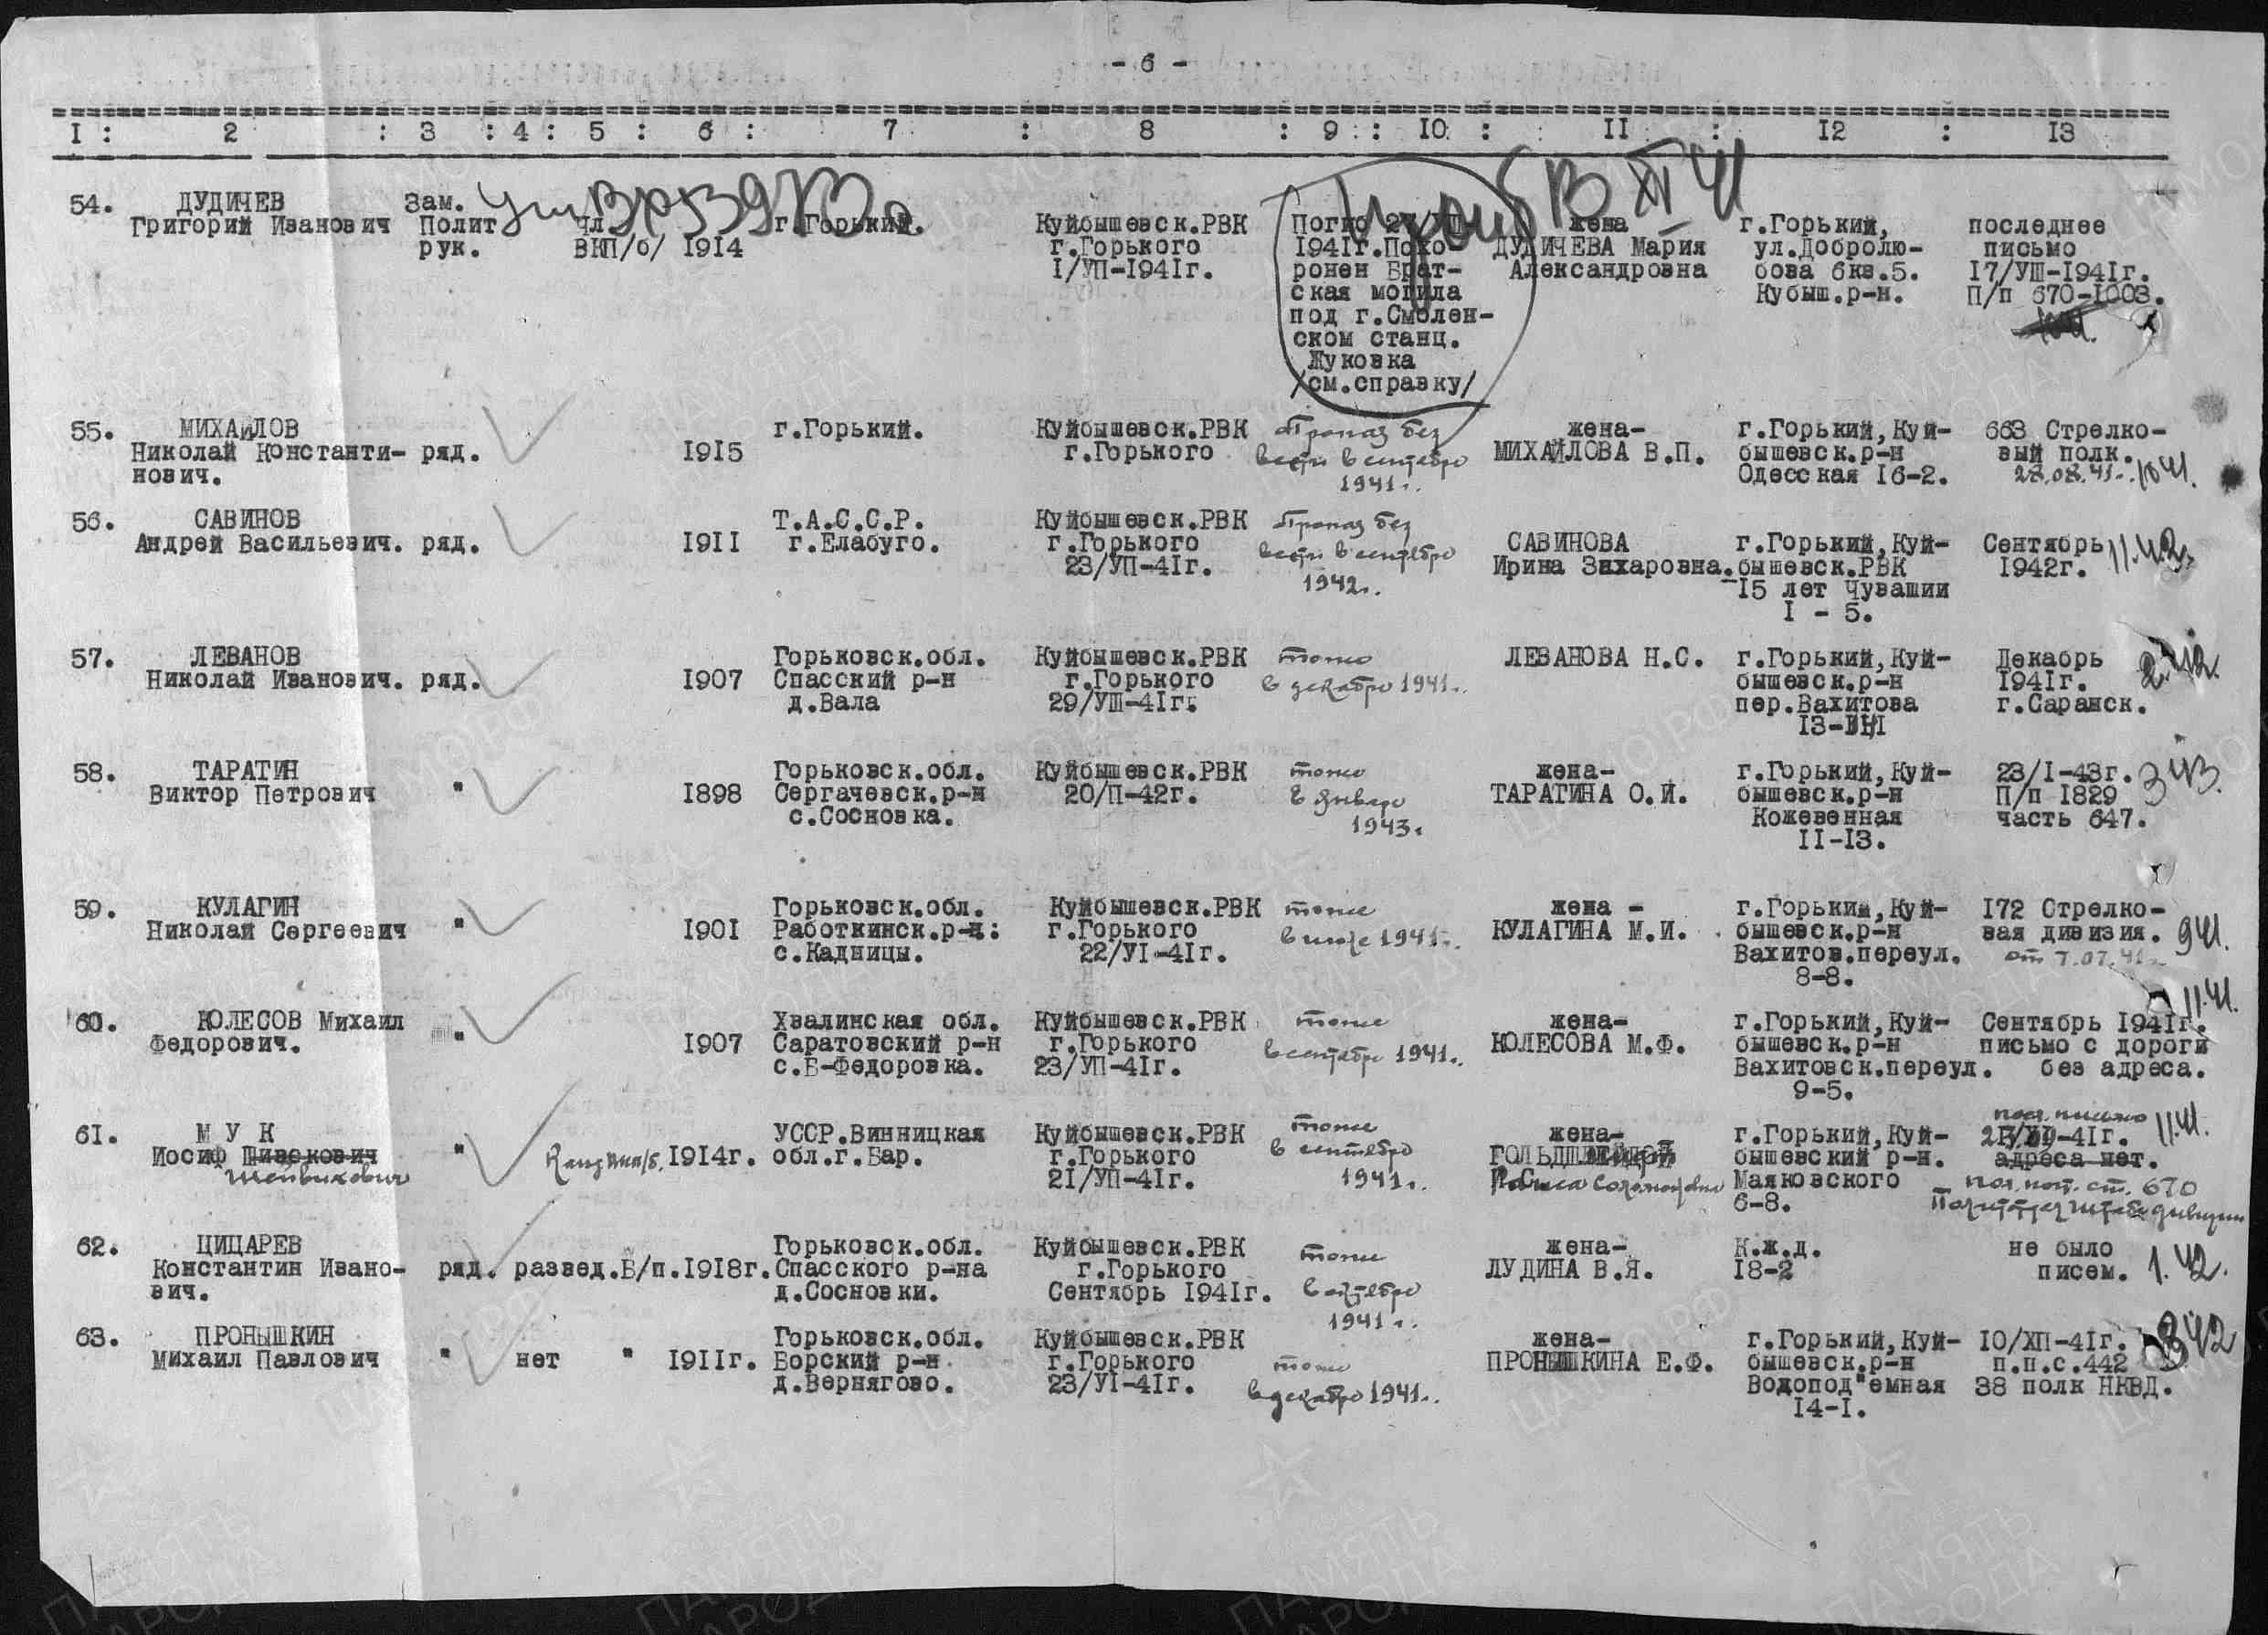 - 6 -
I : 2 : 3 : 4 : 5 : 6 : 7 : 8 : 9 : 10 : 11 : 12 : 13
54. ДУДИЧЕВ Зам.
Григорий Иванович Полит Чл. г.Горький. Куйбышевск.РВК Погиб жена г.Горький, последнее
рук. ВКП/б/ 1914 г.Горького 1941г.Похо- ДУДИЧЕВА Мария ул.Добролю- письмо
1/УП-1941г. ронен Брат- Александровна бова 6кв.5. 17/УШ-1941г.
ская могила Кубыш.р-н. П/п 670-1003.
под г.Смолен-
ском станц.
Жуковка
/см.справку/
В XI 41
55. МИХАЙЛОВ г.Горький. Куйбышевск.РВК Пропал без жена- г.Горький,Куй- 663 Стрелко-
Николай Константи- ряд. 1915 г.Горького вести в сентябре МИХАЙЛОВА В.П. бышевск.р-н вый полк.
нович. 1941г. Одесская 16-2. 28.08.41. 10 41.
56. САВИНОВ Т.А.С.С.Р. Куйбышевск.РВК Пропал без САВИНОВА г.Горький,Куй- Сентябрь 11.42.
Андрей Васильевич. ряд. 1911 г.Елабуго. г.Горького вести в сентябре Ирина Захаровна. бышевск.РВК 1942г.
23/УП-41г. 1942г. 15 лет Чувашии
1 - 5.
57. ЛЕВАНОВ Горьковск.обл. Куйбышевск.РВК тоже ЛЕВАНОВА Н.С. г.Горький,Куй- Декабрь 2.42.
Николай Иванович. ряд. 1907 Спасский р-н г.Горького в декабре 1941г. бышевск.р-н 1941г.
д.Вала 29/УШ-41г. пер.Вахитова г.Саранск.
58. ТАРАТИН Горьковск.обл. Куйбышевск.РВК тоже жена- г.Горький,Куй- 23/I-43г. 3 43.
Виктор Петрович " 1898 Сергачевск.р-н 20/П-42г. в январе ТАРАТИНА О.И. бышевск.р-н П/п 1829
с.Сосновка. 1943г. Кожевенная часть 647.
11-13.
59. КУЛАГИН Горьковск.обл. Куйбышевск.РВК тоже жена - г.Горький,Куй- 172 Стрелко-
Николай Сергеевич " 1901 Работкинск.р-н: г.Горького в июле 1941г. КУЛАГИНА М.И. бышевск.р-н вая дивизия. 9 41.
с.Кадницы. 22/УI-41г. Вахитов.переул. от 7.07.41г.
8-8.
60. ЮЛЕСОВ Михаил Хвалинская обл. Куйбышевск.РВК тоже жена- г.Горький,Куй- Сентябрь 1941г. 11.41.
Федорович. " 1907 Саратовский р-н г.Горького в сентябре 1941г. ЮЛЕСОВА М.Ф. бышевск.р-н письмо с дороги
с.Б-Федоровка. 23/УП-41г. Вахитовск.переул. без адреса.
9-5.
61. М У К УССР.Винницкая Куйбышевск.РВК тоже жена- г.Горький,Куй- посл. письмо 11.41.
Иосиф " Канд ВКП/б. 1914г. обл.г.Бар. г.Горького в сентябре бышевский р-н. адреса нет.
21/УП-41г. 1941г. Маяковского пол. поч. ст. 670
6-8.
62. ЦИЦАРЕВ Горьковск.обл. Куйбышевск.РВК тоже жена- К.ж.д. не было
Константин Ивано- ряд. развед.Б/п. 1918г. Спасского р-на г.Горького в октябре ЛУДИНА В.Я. 18-2 писем. 1.42.
вич. д.Сосновки. Сентябрь 1941г. 1941г.
63. ПРОНЫШКИН Горьковск.обл. Куйбышевск.РВК тоже жена- г.Горький,Куй- 10/ХП-41г. 3 42
Михаил Павлович " нет " 1911г. Борский р-н г.Горького в декабре 1941г. ПРОНЫШКИНА Е.Ф. бышевск.р-н п.п.с.442
д.Вернягово. 23/УI-41г. Водопод"емная 38 полк НКВД.
14-1.